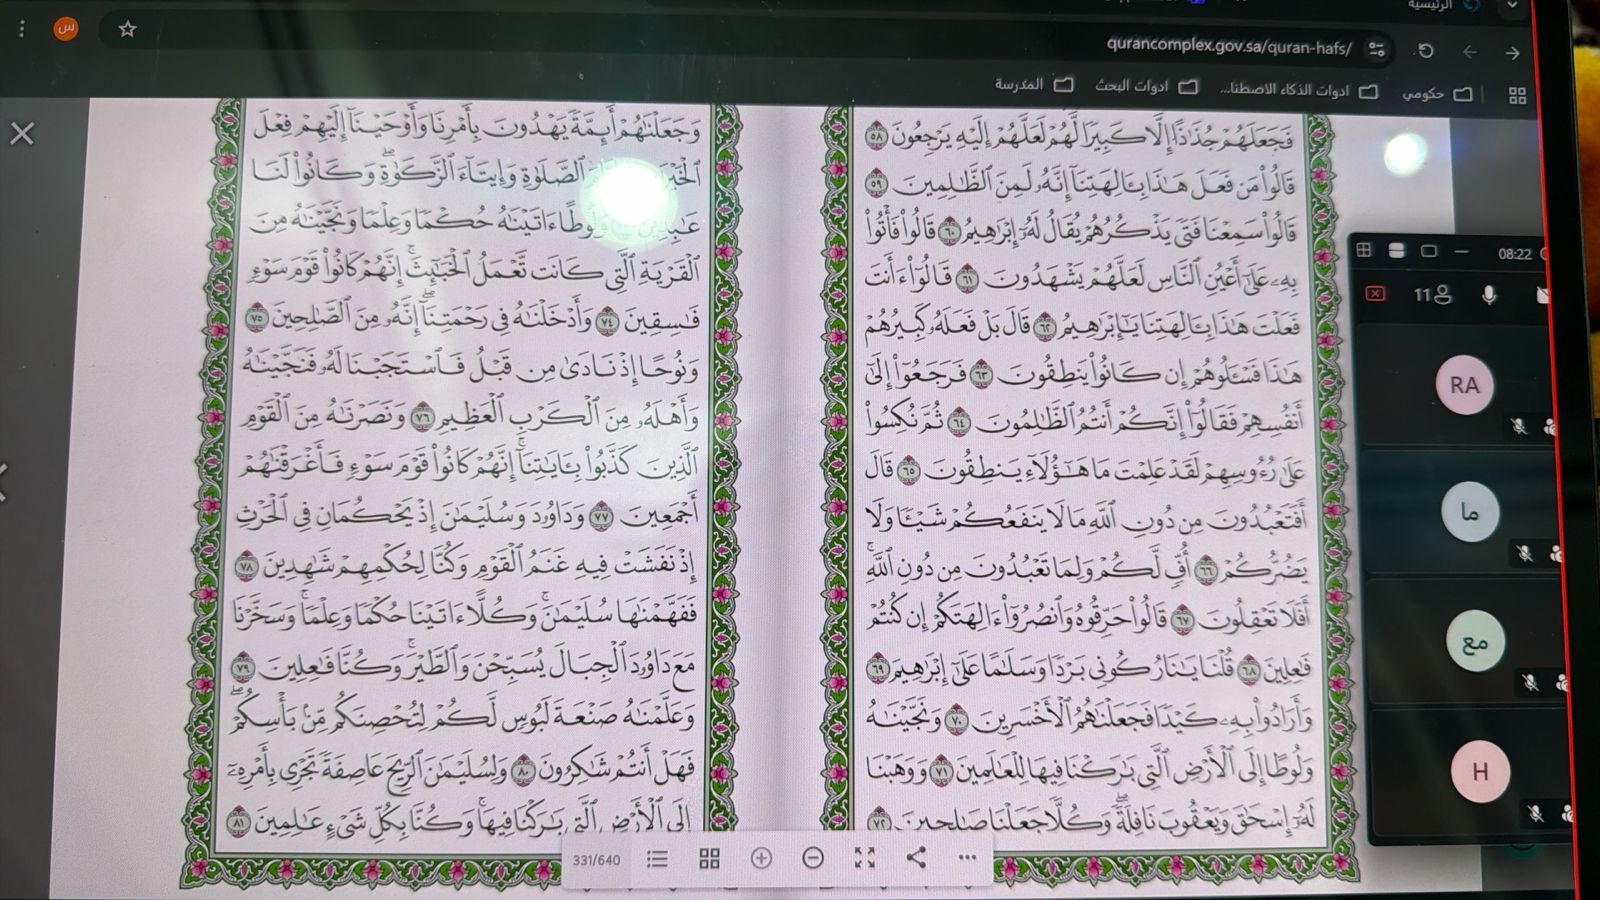 الرئيسية
qurancomplex.gov.sa/quran-hafs/
س
حكومي
ادوات الذكاء الاصطنا...
ادوات البحث
المدرسة
فَجَعَلَهُمْ جُذَٰذًا إِلَّا كَبِيرًا لَّهُمْ لَعَلَّهُمْ إِلَيْهِ يَرْجِعُونَ ٥٨
قَالُوا۟ مَن فَعَلَ هَٰذَا بِـَٔالِهَتِنَآ إِنَّهُۥ لَمِنَ ٱلظَّٰلِمِينَ ٥٩
قَالُوا۟ سَمِعْنَا فَتًى يَذْكُرُهُمْ يُقَالُ لَهُۥٓ إِبْرَٰهِيمُ ٦٠ قَالُوا۟ فَأْتُوا۟
بِهِۦ عَلَىٰٓ أَعْيُنِ ٱلنَّاسِ لَعَلَّهُمْ يَشْهَدُونَ ٦١ قَالُوٓا۟ ءَأَنتَ
فَعَلْتَ هَٰذَا بِـَٔالِهَتِنَا يَٰٓإِبْرَٰهِيمُ ٦٢ قَالَ بَلْ فَعَلَهُۥ كَبِيرُهُمْ
هَٰذَا فَسْـَٔلُوهُمْ إِن كَانُوا۟ يَنطِقُونَ ٦٣ فَرَجَعُوٓا۟ إِلَىٰٓ
أَنفُسِهِمْ فَقَالُوٓا۟ إِنَّكُمْ أَنتُمُ ٱلظَّٰلِمُونَ ٦٤ ثُمَّ نُكِسُوا۟
عَلَىٰ رُءُوسِهِمْ لَقَدْ عَلِمْتَ مَا هَٰٓؤُلَآءِ يَنطِقُونَ ٦٥ قَالَ
أَفَتَعْبُدُونَ مِن دُونِ ٱللَّهِ مَا لَا يَنفَعُكُمْ شَيْـًٔا وَلَا
يَضُرُّكُمْ ٦٦ أُفٍّ لَّكُمْ وَلِمَا تَعْبُدُونَ مِن دُونِ ٱللَّهِۚ
أَفَلَا تَعْقِلُونَ ٦٧ قَالُوا۟ حَرِّقُوهُ وَٱنصُرُوٓا۟ ءَالِهَتَكُمْ إِن كُنتُمْ
فَٰعِلِينَ ٦٨ قُلْنَا يَٰنَارُ كُونِى بَرْدًا وَسَلَٰمًا عَلَىٰٓ إِبْرَٰهِيمَ ٦٩
وَأَرَادُوا۟ بِهِۦ كَيْدًا فَجَعَلْنَٰهُمُ ٱلْأَخْسَرِينَ ٧٠ وَنَجَّيْنَٰهُ
وَلُوطًا إِلَى ٱلْأَرْضِ ٱلَّتِى بَٰرَكْنَا فِيهَا لِلْعَٰلَمِينَ ٧١ وَوَهَبْنَا
لَهُۥٓ إِسْحَٰقَ وَيَعْقُوبَ نَافِلَةًۖ وَكُلًّا جَعَلْنَا صَٰلِحِينَ ٧٢
وَجَعَلْنَٰهُمْ أَئِمَّةً يَهْدُونَ بِأَمْرِنَا وَأَوْحَيْنَآ إِلَيْهِمْ فِعْلَ
ٱلصَّلَوٰةِ وَإِيتَآءَ ٱلزَّكَوٰةِۖ وَكَانُوا۟ لَنَا
عَٰبِدِينَ وَلُوطًا ءَاتَيْنَٰهُ حُكْمًا وَعِلْمًا وَنَجَّيْنَٰهُ مِنَ
ٱلْقَرْيَةِ ٱلَّتِى كَانَت تَّعْمَلُ ٱلْخَبَٰٓئِثَۚ إِنَّهُمْ كَانُوا۟ قَوْمَ سَوْءٍ
فَٰسِقِينَ ٧٤ وَأَدْخَلْنَٰهُ فِى رَحْمَتِنَآۖ إِنَّهُۥ مِنَ ٱلصَّٰلِحِينَ ٧٥
وَنُوحًا إِذْ نَادَىٰ مِن قَبْلُ فَٱسْتَجَبْنَا لَهُۥ فَنَجَّيْنَٰهُ
وَأَهْلَهُۥ مِنَ ٱلْكَرْبِ ٱلْعَظِيمِ ٧٦ وَنَصَرْنَٰهُ مِنَ ٱلْقَوْمِ
ٱلَّذِينَ كَذَّبُوا۟ بِـَٔايَٰتِنَآۚ إِنَّهُمْ كَانُوا۟ قَوْمَ سَوْءٍ فَأَغْرَقْنَٰهُمْ
أَجْمَعِينَ ٧٧ وَدَاوُۥدَ وَسُلَيْمَٰنَ إِذْ يَحْكُمَانِ فِى ٱلْحَرْثِ
إِذْ نَفَشَتْ فِيهِ غَنَمُ ٱلْقَوْمِ وَكُنَّا لِحُكْمِهِمْ شَٰهِدِينَ ٧٨
فَفَهَّمْنَٰهَا سُلَيْمَٰنَۚ وَكُلًّا ءَاتَيْنَا حُكْمًا وَعِلْمًاۚ وَسَخَّرْنَا
مَعَ دَاوُۥدَ ٱلْجِبَالَ يُسَبِّحْنَ وَٱلطَّيْرَۚ وَكُنَّا فَٰعِلِينَ ٧٩
وَعَلَّمْنَٰهُ صَنْعَةَ لَبُوسٍ لَّكُمْ لِتُحْصِنَكُم مِّنۢ بَأْسِكُمْۖ
فَهَلْ أَنتُمْ شَٰكِرُونَ ٨٠ وَلِسُلَيْمَٰنَ ٱلرِّيحَ عَاصِفَةً تَجْرِى بِأَمْرِهِۦٓ
إِلَى ٱلْأَرْضِ ٱلَّتِى بَٰرَكْنَا فِيهَاۚ وَكُنَّا بِكُلِّ شَىْءٍ عَٰلِمِينَ ٨١
331/640
08:22
11
RA
ما
مع
H